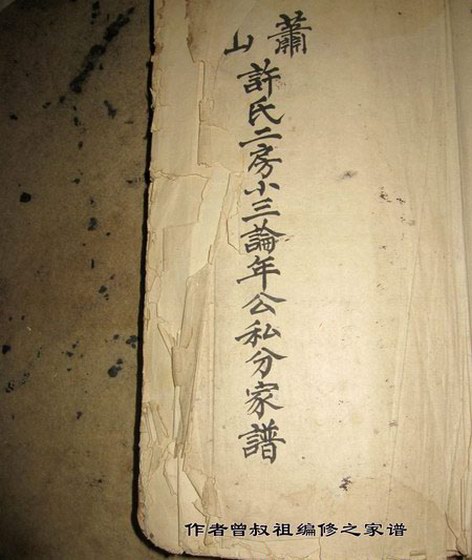 蕭山
許氏二房小三論年公私分家譜
作者曾叔祖编修之家谱